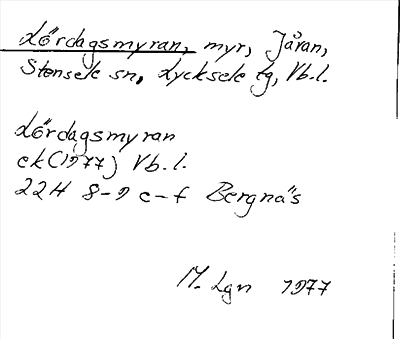 Lördagsmyran, myr, Jåran,
Stensele sn, Lycksele lg, Vb.l.
Lördagsmyran
ek(1977) Vb.l.
22H 8-9 e-f Bergnäs
M. Lgn 1977